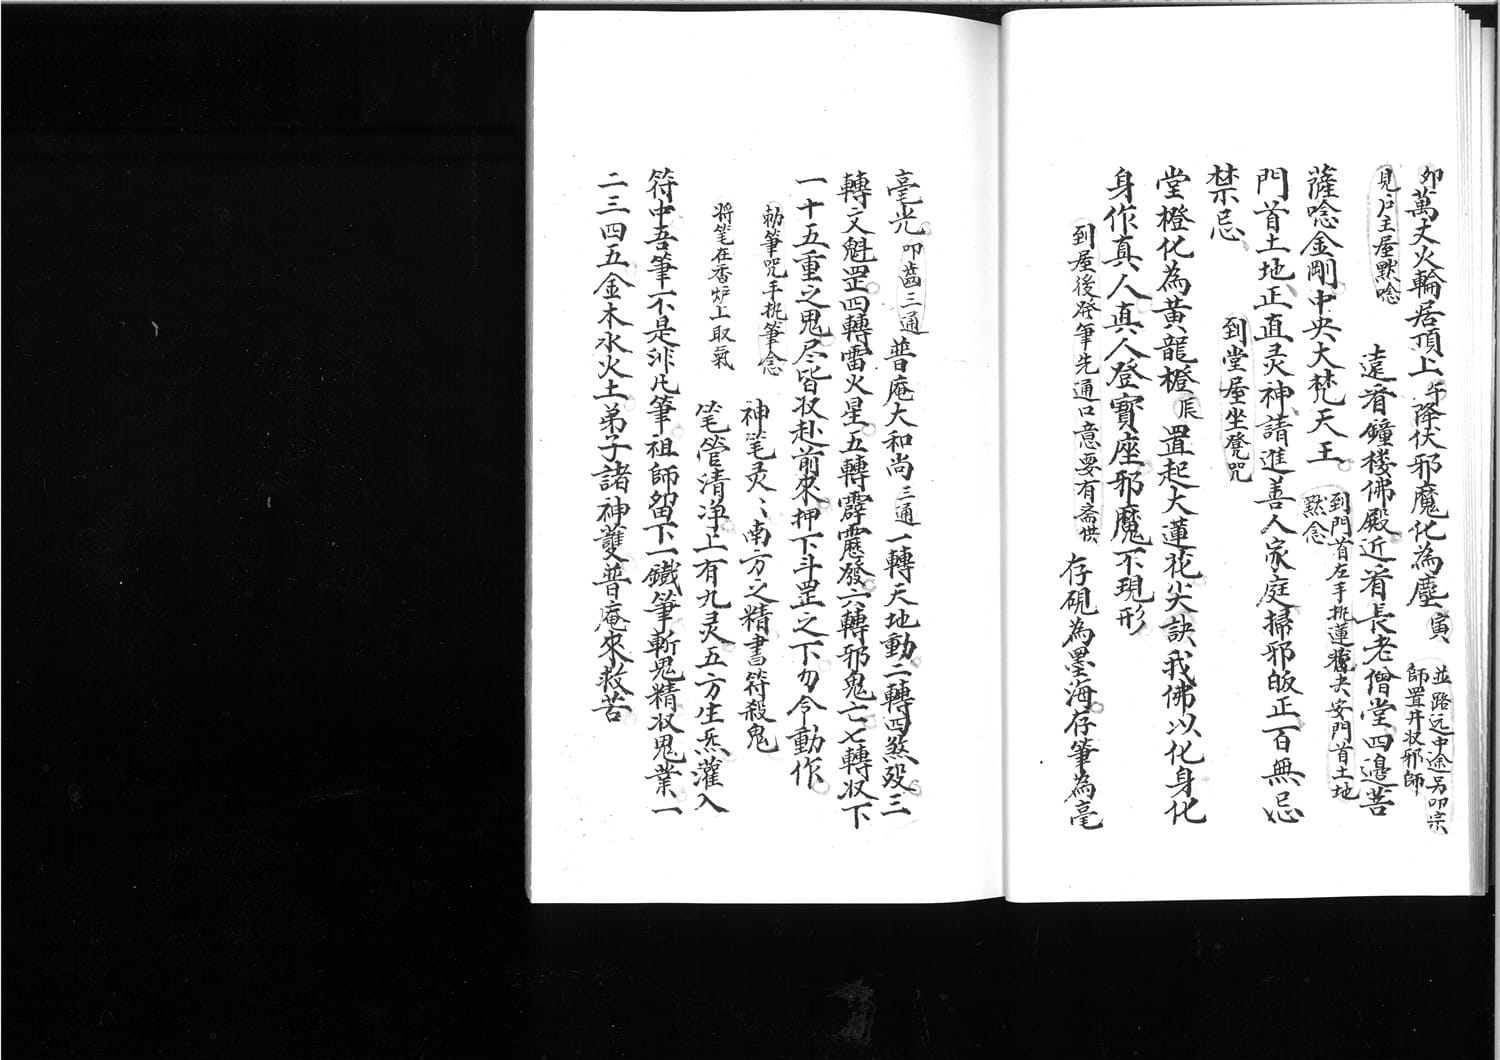 卯萬丈火輪居頂上午降伏邪魔化為塵寅
並路远中途另叩宗
師置井収邪師
見户主屋黙唸
遠看鐘楼佛殿近看長老僧堂四邉菩
薩唸金剛中央大梵天王
到門首左手挑蓮花尖安門首土地
黙念
門首土地正直灵神請進善人家庭掃邪皈正一百無忌
禁忌
到堂屋坐凳咒
堂橙化為黃龍橙辰置起大蓮花尖訣我佛以化身化
身作真人真人登寳座邪魔不現形
到屋後發筆先通口意要有斋供
存硯為墨海存筆為毫
毫光叩齒三通普庵大和尚三通一轉天地動二轉四煞殁三
轉文魁罡四轉雷火星五轉霹靂發六轉邪鬼亡七轉収下
一十五重之鬼尽皆収赴前來押下斗罡之下勿令動作
勅筆咒手挑筆念
神笔灵〻南方之精書符殺鬼
将笔在香炉上取氣
笔管清净上有九灵五方生炁灌入
符中吾筆不是非凡筆祖師留下一鐵筆斬鬼精収鬼業一
二三四五金木水火土弟子諸神護普庵來救苦